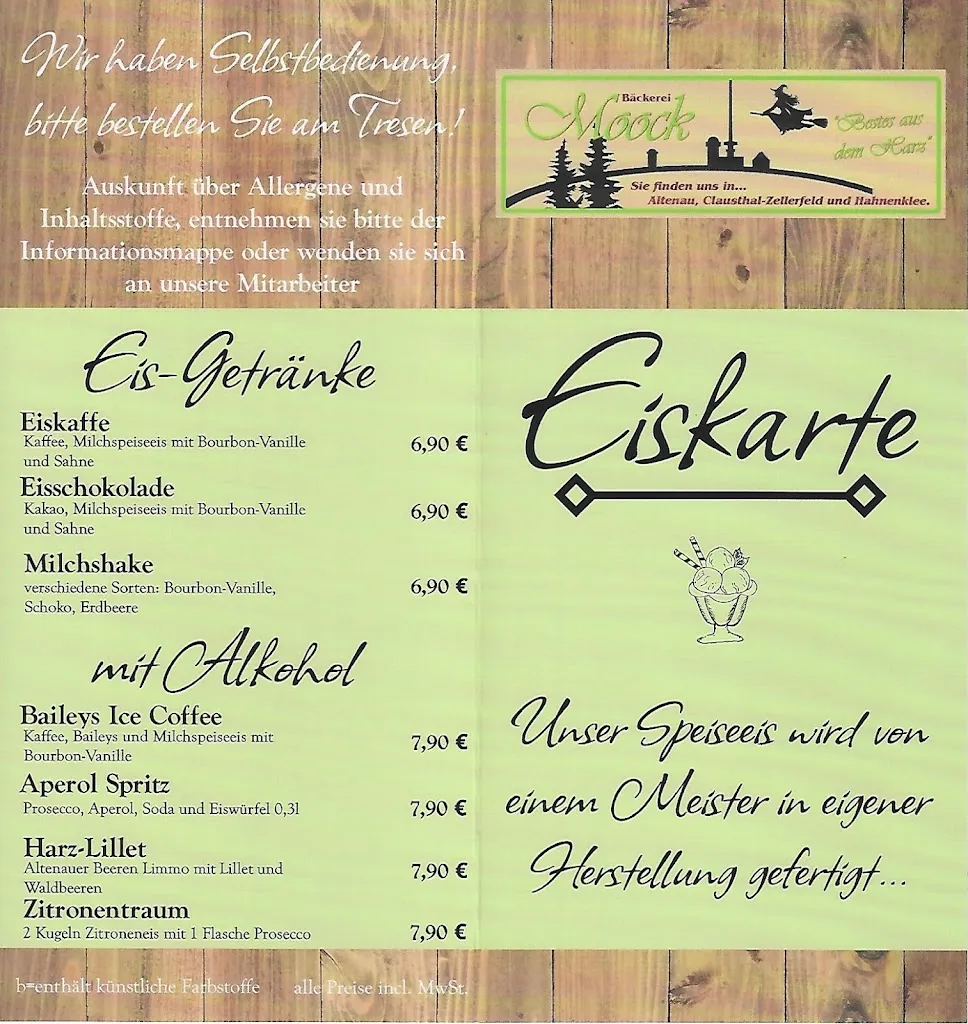 Wir haben Selbstbedienung,
bitte bestellen Sie am Tresen!
Auskunft über Allergene und
Inhaltsstoffe, entnehmen sie bitte der
Informationsmappe oder wenden sie sich
an unsere Mitarbeiter
Eis-Getränke
Eiskaffe
Kaffee, Milchspeiseeis mit Bourbon-Vanille
und Sahne
6,90 €
Eisschokolade
Kakao, Milchspeiseeis mit Bourbon-Vanille
und Sahne
6,90 €
Milchshake
verschiedene Sorten: Bourbon-Vanille,
Schoko, Erdbeere
6,90 €
mit Alkohol
Baileys Ice Coffee
Kaffee, Baileys und Milchspeiseeis mit
Bourbon-Vanille
7,90 €
Aperol Spritz
Prosecco, Aperol, Soda und Eiswürfel 0,3l
7,90 €
Harz-Lillet
Altenauer Beeren Limmo mit Lillet und
Waldbeeren
7,90 €
Zitronentraum
2 Kugeln Zitroneneis mit 1 Flasche Prosecco
7,90 €
b=enthält künstliche Farbstoffe alle Preise incl. MwSt.
Bäckerei
Moock
"Bestes aus
dem Harz"
Sie finden uns in...
Altenau, Clausthal-Zellerfeld und Hahnenklee.
Eiskarte
Unser Speiseeis wird von
einem Meister in eigener
Herstellung gefertigt...